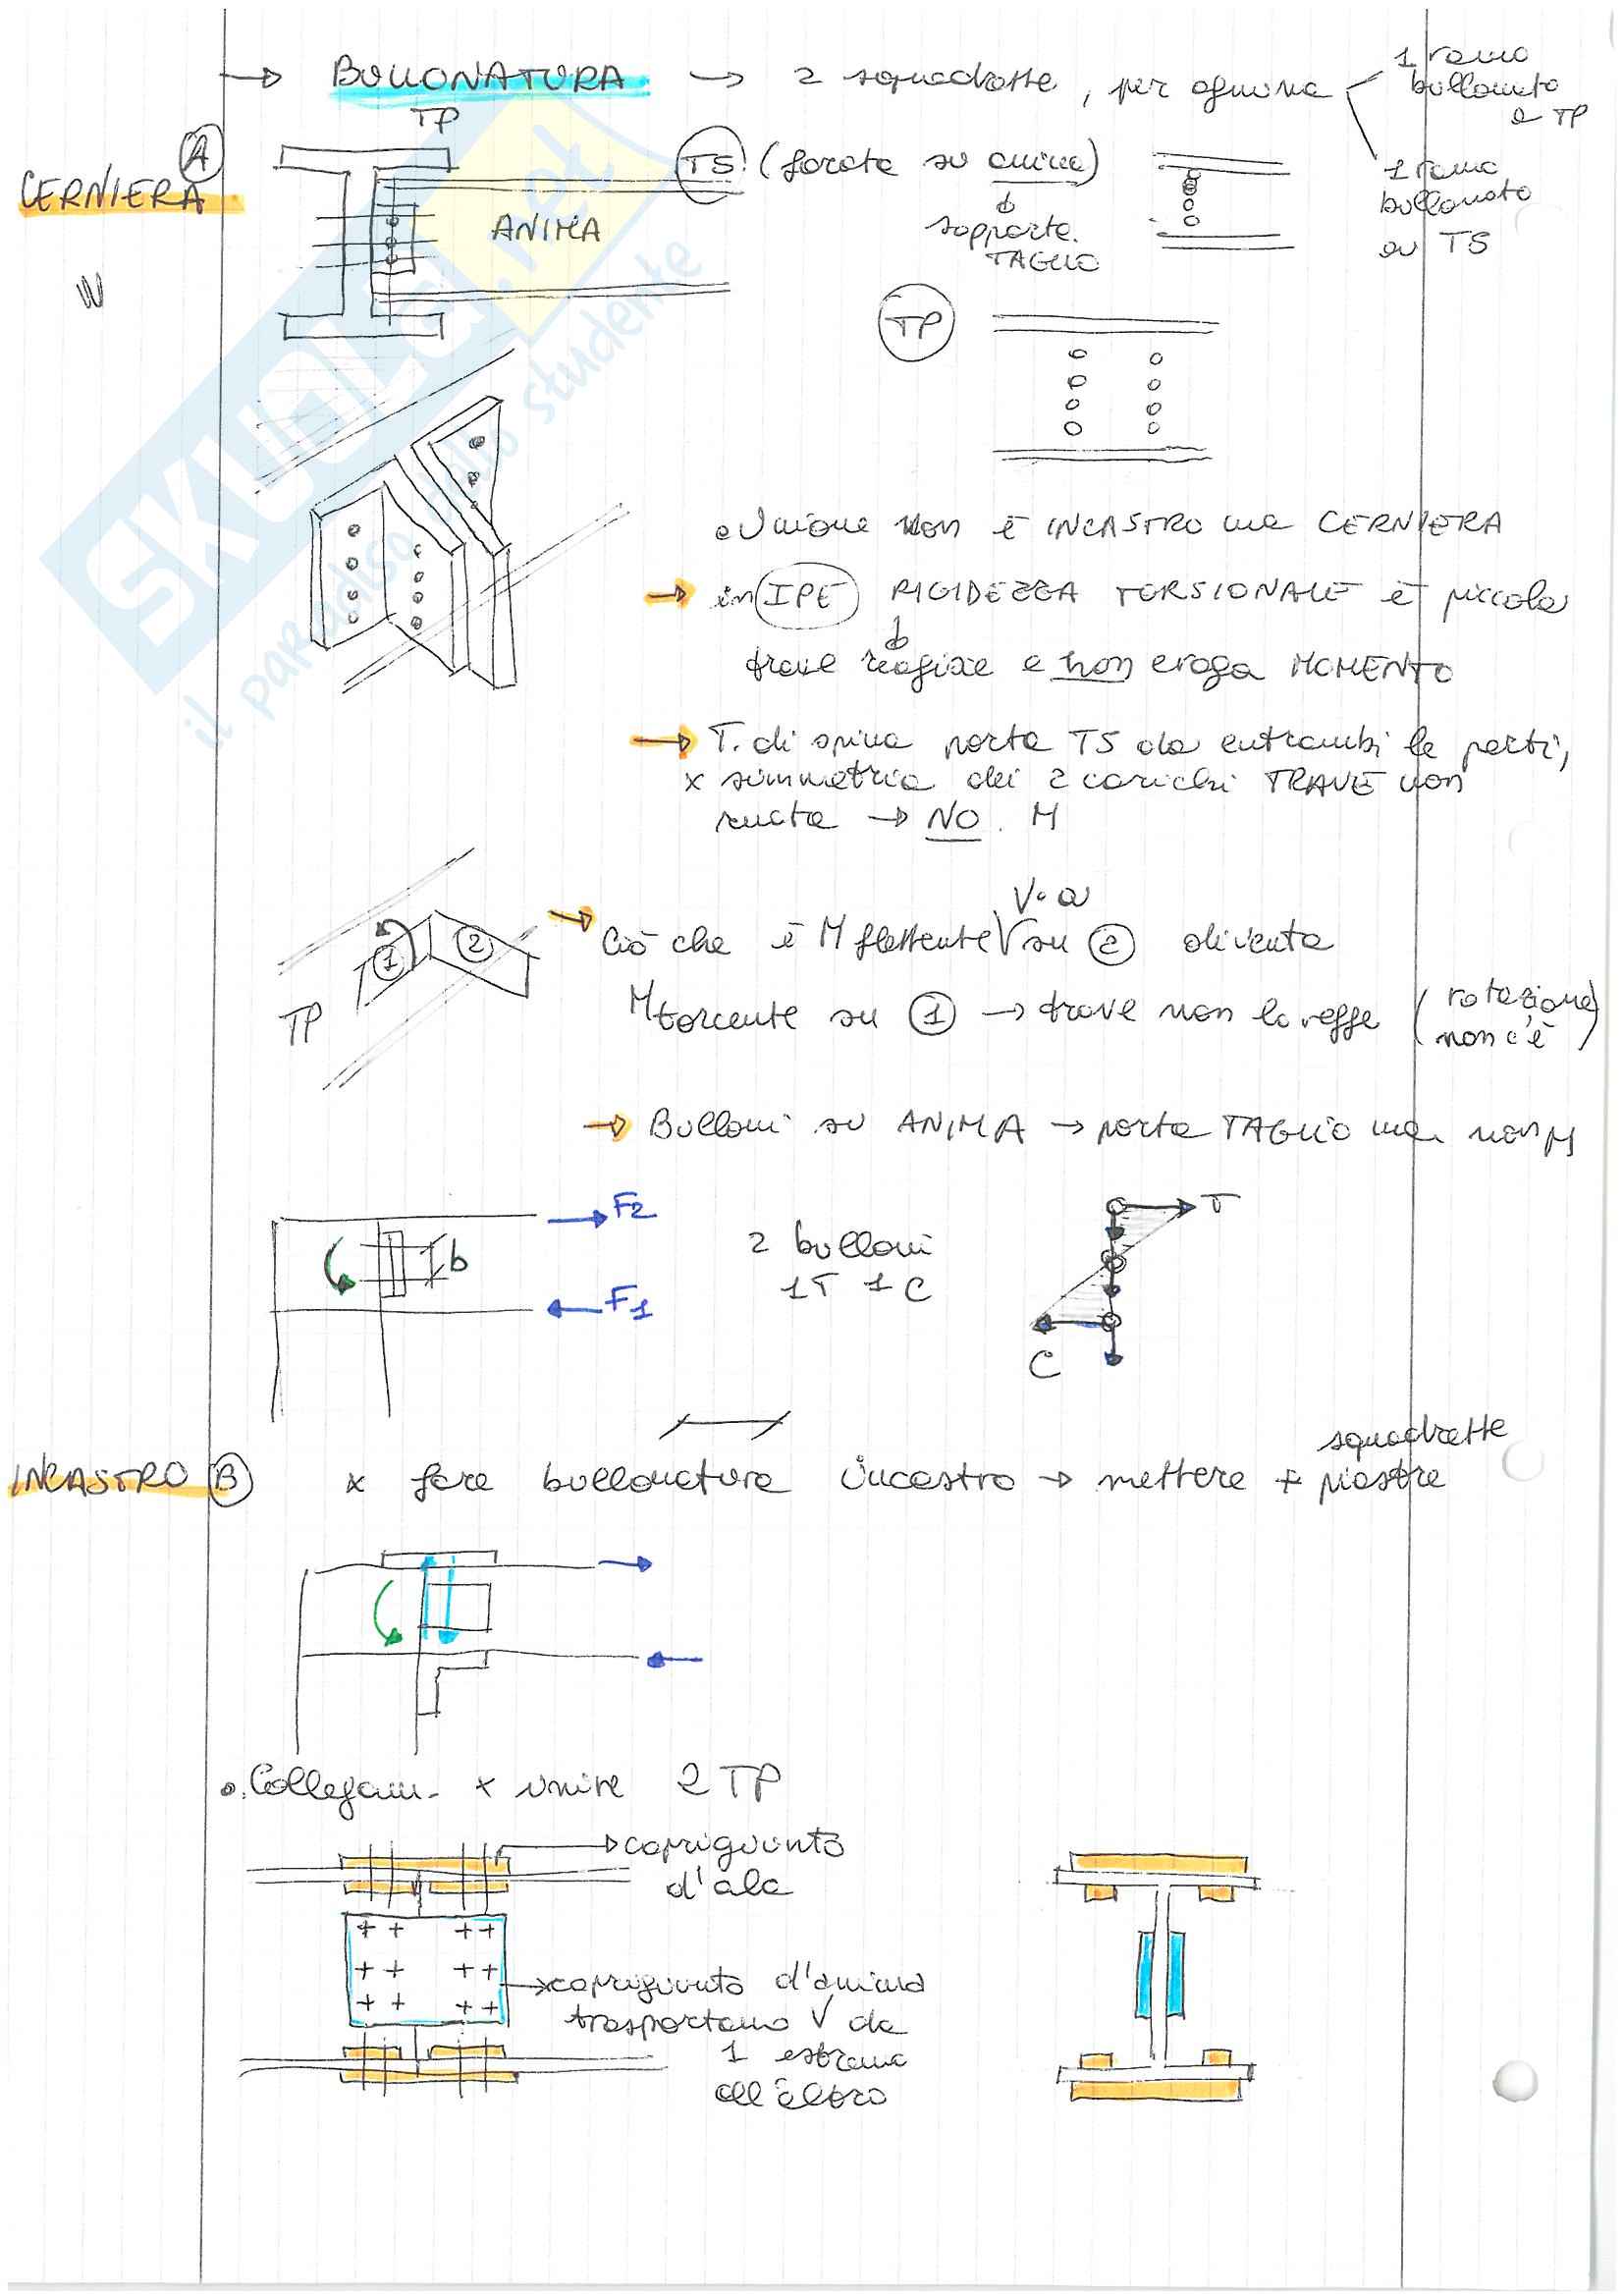 → BULLONATURA → 2 squadrette, per ognuna
1 ramo bullonato a TP
1 ramo bullonato su TS
CERNIERA
A
TP
ANIMA
TS (forata su anima)
↓
sopporta
TAGLIO
TP
• Unione non è INCASTRO ma CERNIERA
→ in IPE RIGIDEZZA TORSIONALE è piccola
↓
trave reagisce e non eroga MOMENTO
→ T. di spina porta TS da entrambi le parti,
x simmetria dei 2 carichi TRAVE non
ruota → NO M
1
2
TP
V·a
→ Ciò che è M flettente su 2 diventa
M torcente su 1 → trave non lo regge (rotazione non c'è)
→ Bulloni su ANIMA → porta TAGLIO ma non M
F2
b
F1
2 bulloni
1T 1C
T
C
INCASTRO B
squadrette
x fare bullonatura incastro → mettere + piastre
• Collegam. x unire 2 TP
coprigiunto
d'ala
coprigiunto d'anima
trasportano V da
1 estremo
all'altro
SKUOLA.net
il paradiso dello studente